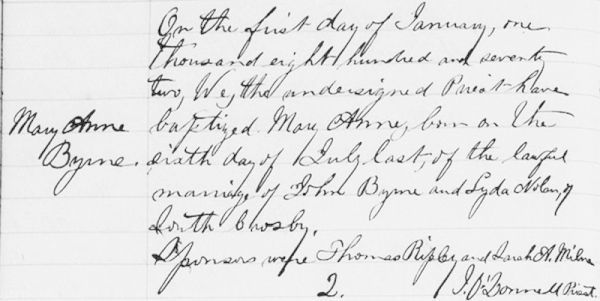 On the first day of January, one
thousand eight hundred and seventy
two, We, the undersigned Priest have
Mary Anne baptized Mary Anne, born on the
Byrne. sixth day of July last, of the lawful
marriage of John Byrne and Lyda Nolan, of
South Crosby.
Sponsors were Thomas Ripley and Sarah A. Milne
2. J. O'Donnell Priest.